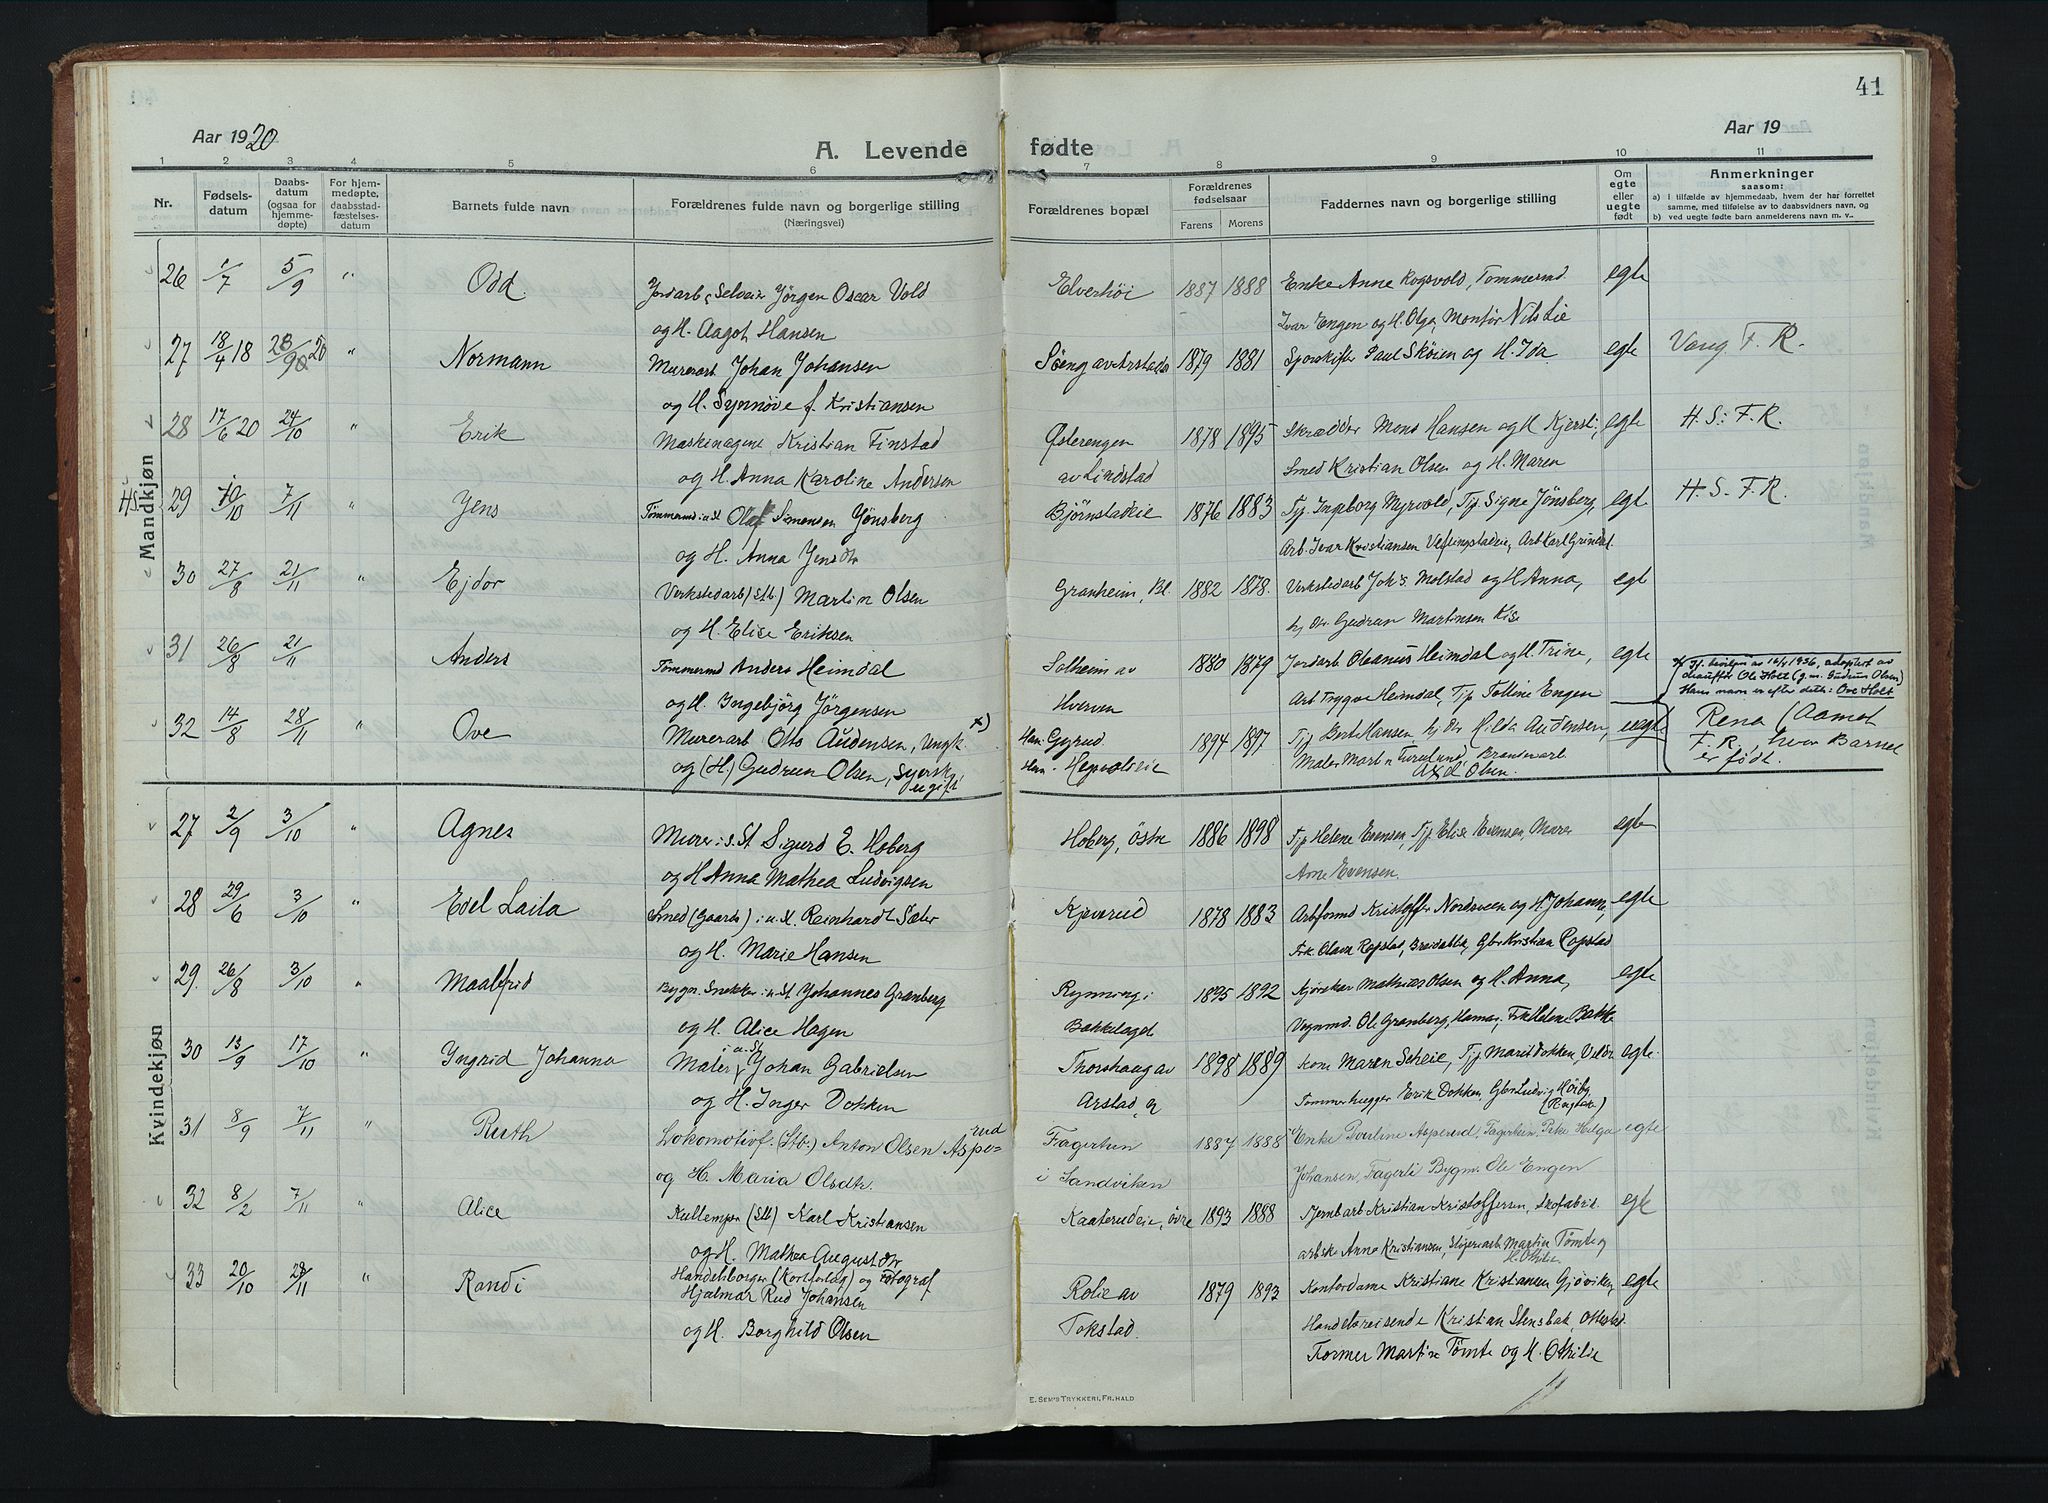 41
Aar 1920
A. Levende fødte
Aar 19
1 2 3 4 5 6 7 8 9 10 11
Nr.
Fødselsdatum
Daabsdatum (ogsaa for hjemmedøpte)
For hjemmedøpte, daabsstadfæstelsesdatum
Barnets fulde navn
Forældrenes fulde navn og borgerlige stilling (Næringsvei)
Forældrenes bopæl
Forældrenes fødselsaar
Farens Morens
Faddernes navn og borgerlige stilling
Om egte eller uegte født
Anmerkninger saasom:
a) i tilfælde av hjemmedaab, hvem der har forrettet samme, med tilføielse av to daabsvidners navn, og
b) ved uegte fødte barn anmelderens navn m. v..
Mandkjøn
26 1/7 5/9 " Odd. Jordarb., Selveier Jörgen Oscar Vold Elverhöi 1887 1888 Enke Anne Rogsvold, Tømmermd. egte
og H. Aagot Hansen Ivar Engen og H. Olga, Montör Nils Lie
27 18/4 18 28/9 20 " Normann Murerarb Johan Johansen 1879 1881 Paul Sköien og H. Ida egte Vang F. R.
og H. Synnöve f. Kristiansen
28 17/6 20 24/10 " Erik Maskinagent Kristian Finstad Østerengen 1878 1895 Skrædder Mons Hansen og H Kjersti, egte H. S. F. R.
og H. Anna Karoline Andersen av Lindstad Smed Kristian Olsen og H. Maren
HS. 29 10/10 7/11 " Jens Tömmermd i. u. St Olaf Simensen Jönsberg Björnstadeie 1876 1883 Tj. Ingeborg Myrvold, Tj. Signe Jönsberg, egt H. S. F. R.
og H. Anna Jensdtr Arb. Ivar Kristiansen Arb Karl Grindal.
30 27/8 21/11 " Ejdor Verkstedarb (Stb.) Martin Olsen Granheim, Bl. 1882 1878. Verkstedarb Joh's Molstad og H Anna, egt
og H. Elise Eriksen hj. dtr. Gudrun Martinsen Kise
31 26/8 21/11 " Anders Tömmermd Anders Heimdal Solheim av 1880 1879 Jordarb. Oleanus Heimdal og H. Trine, egte
og H. Ingebjörg Jörgensen Hverven Arb Trygve Heimdal, Tjp Telline Engen
x) adoptert av chauffør Ole Holt (g. m. Gudrun Olsen)
Hans navn er efter dette: Ove Holt
32 14/8 28/11 " Ove Murerarb Otto Audensen, Ungk. x) Han: Gyrud 1894 1897 Tj Bert Hansen hj dtr Hilda Audensen, uegte Rena (Aamot
og (H) Gudrun Olsen, Syersk ugift Hun - Maler Martin Furulund, Brandvarb. Axel Olsen. F. R., hvor Barnet er født.
Kvindekjøn
27 2/9 3/10 " Agnes Murer i. s. St Sigurd E. Hoberg Hoberg, östre 1886 1898 Tjp Helene Evensen, Tjp. Elise Evensen, Murer egte
og H Anna Mathea Ludvigsen Arne Evensen.
28 29/6 3/10 " Edel Laila Smed (Gaarbr.) i. u. st. Reinhardt Sæter Kjæverud 1878 1883 Arbformd Kristoffer Nordsveen og H. Johanne, egte
og H. Marie Hansen Frk. Olava Ropstad, Gbr Kristian Ropstad
29. 26/8 3/10 " Maalfrid Bygn. Snekker i. u. St. Johannes Granberg Rynning i 1895 1892 Kjörekar Mathias Olsen og H. Anna, egte
og H. Alice Hagen Bakkelaget Vognmd. Ole Granberg, Hamar, Frk Helene Bakke
30 13/9 17/10 " Yngrid Johanna Maler i. u. St Johan Gabrielsen Thorshaug av 1898 1889 Kone Maren Scheie, Tjp Marit Dokken, Veldre egte.
og H. Inger Dokken Arstad, Tömmerhugger Erik Dokken, Gbr Ludvig Höiby
31 8/9 7/11 " Ruth Lokomotivf. (Stb.) Anton Olsen Asperud Fagertun 1887 1888 Enke Pauline Asperud, Fagertun, Pike Helga egte
og H. Maria Olsdtr. i Sandviken Johansen, Fagerli Bygm. Ole Engen
32 8/2 7/11 " Alice Kullemper (Stb) Karl Kristiansen Kaaterudeie, övre 1893 1888 Kristian Kristoffersen, Skofabrik. egte
og H. Mathea Augustdtr arbske Anne Kristiansen, Martin Tömte og H. Othilie
33 20/10 28/11 " Randi Handelsborger (Kortforlag) og Fotograf Rolie av 1879 1893 Kontordame Kristiane Kristiansen Gjövik, egte
Hjalmar Rud Johansen
og H. Borghild Olsen Tokstad. Handelsreisende Kristian Stensbak, Ottestad
Former Martin Tömte og H. Othilie
E. Sem's Trykkeri, Fr.hald